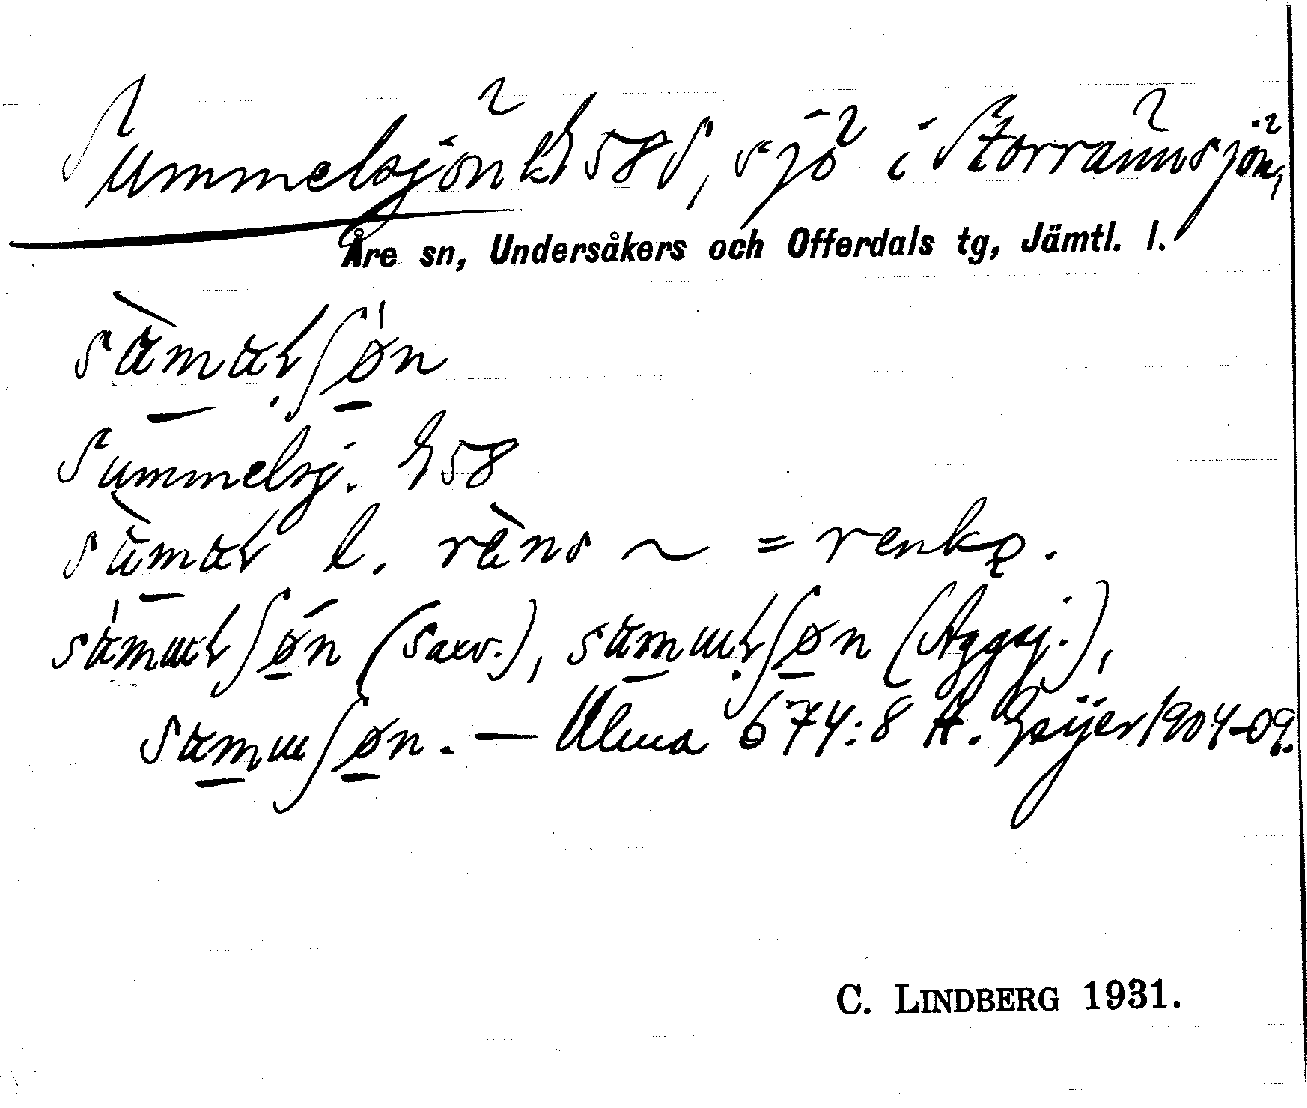 Summelsjön k 58 S, sjö i Storrännsjön,
Åre sn, Undersåkers och Offerdals tg, Jämtl. l.
sàmalʃøn
Summelsj. k 58
sàmal l. ràns ~ = renko.
samɯlʃøn (Saxv.), samɯlʃøn (Äggsj.),
samɯʃøn. — Ulma 674:8 H. Geijer 1904-09.
C. LINDBERG 1931.